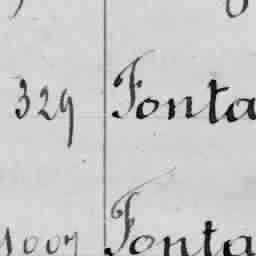 329 Fonta
1007 Fonta